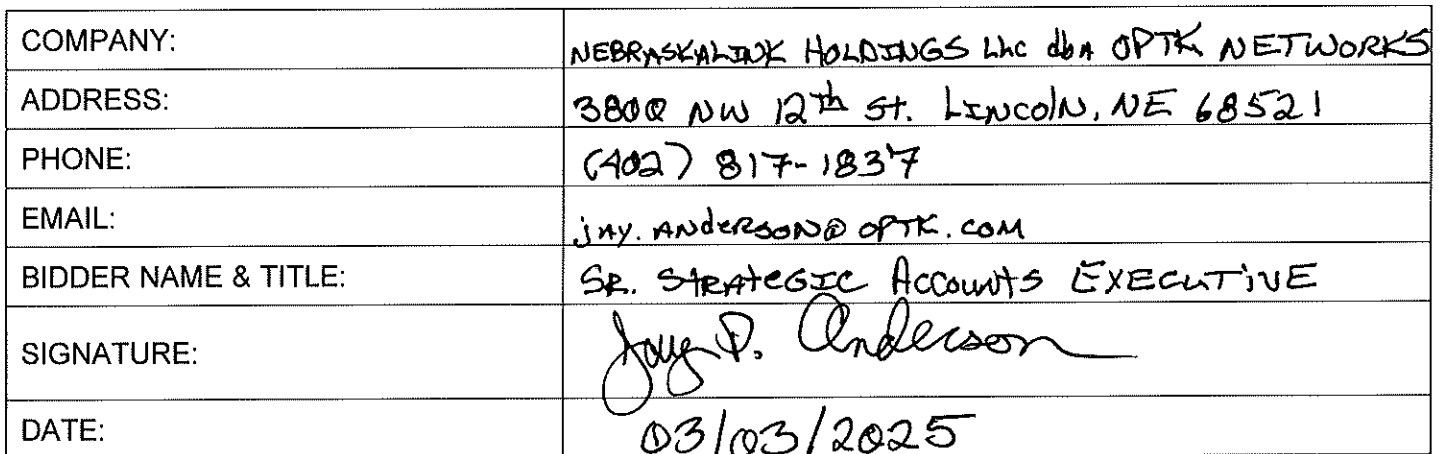 COMPANY: NEBRASKALINK HOLDINGS LLC dbA OPTK NETWORKS
ADDRESS: 3800 NW 12th St. LINColN, NE 68521
PHONE: (402) 817-1837
EMAIL: jAY.ANdERSON@OPTK.COM
BIDDER NAME & TITLE: SR. StRAtEGIC ACCOUNtS EXECUTiVE
SIGNATURE: Jay P. Anderson
DATE: 03/03/2025